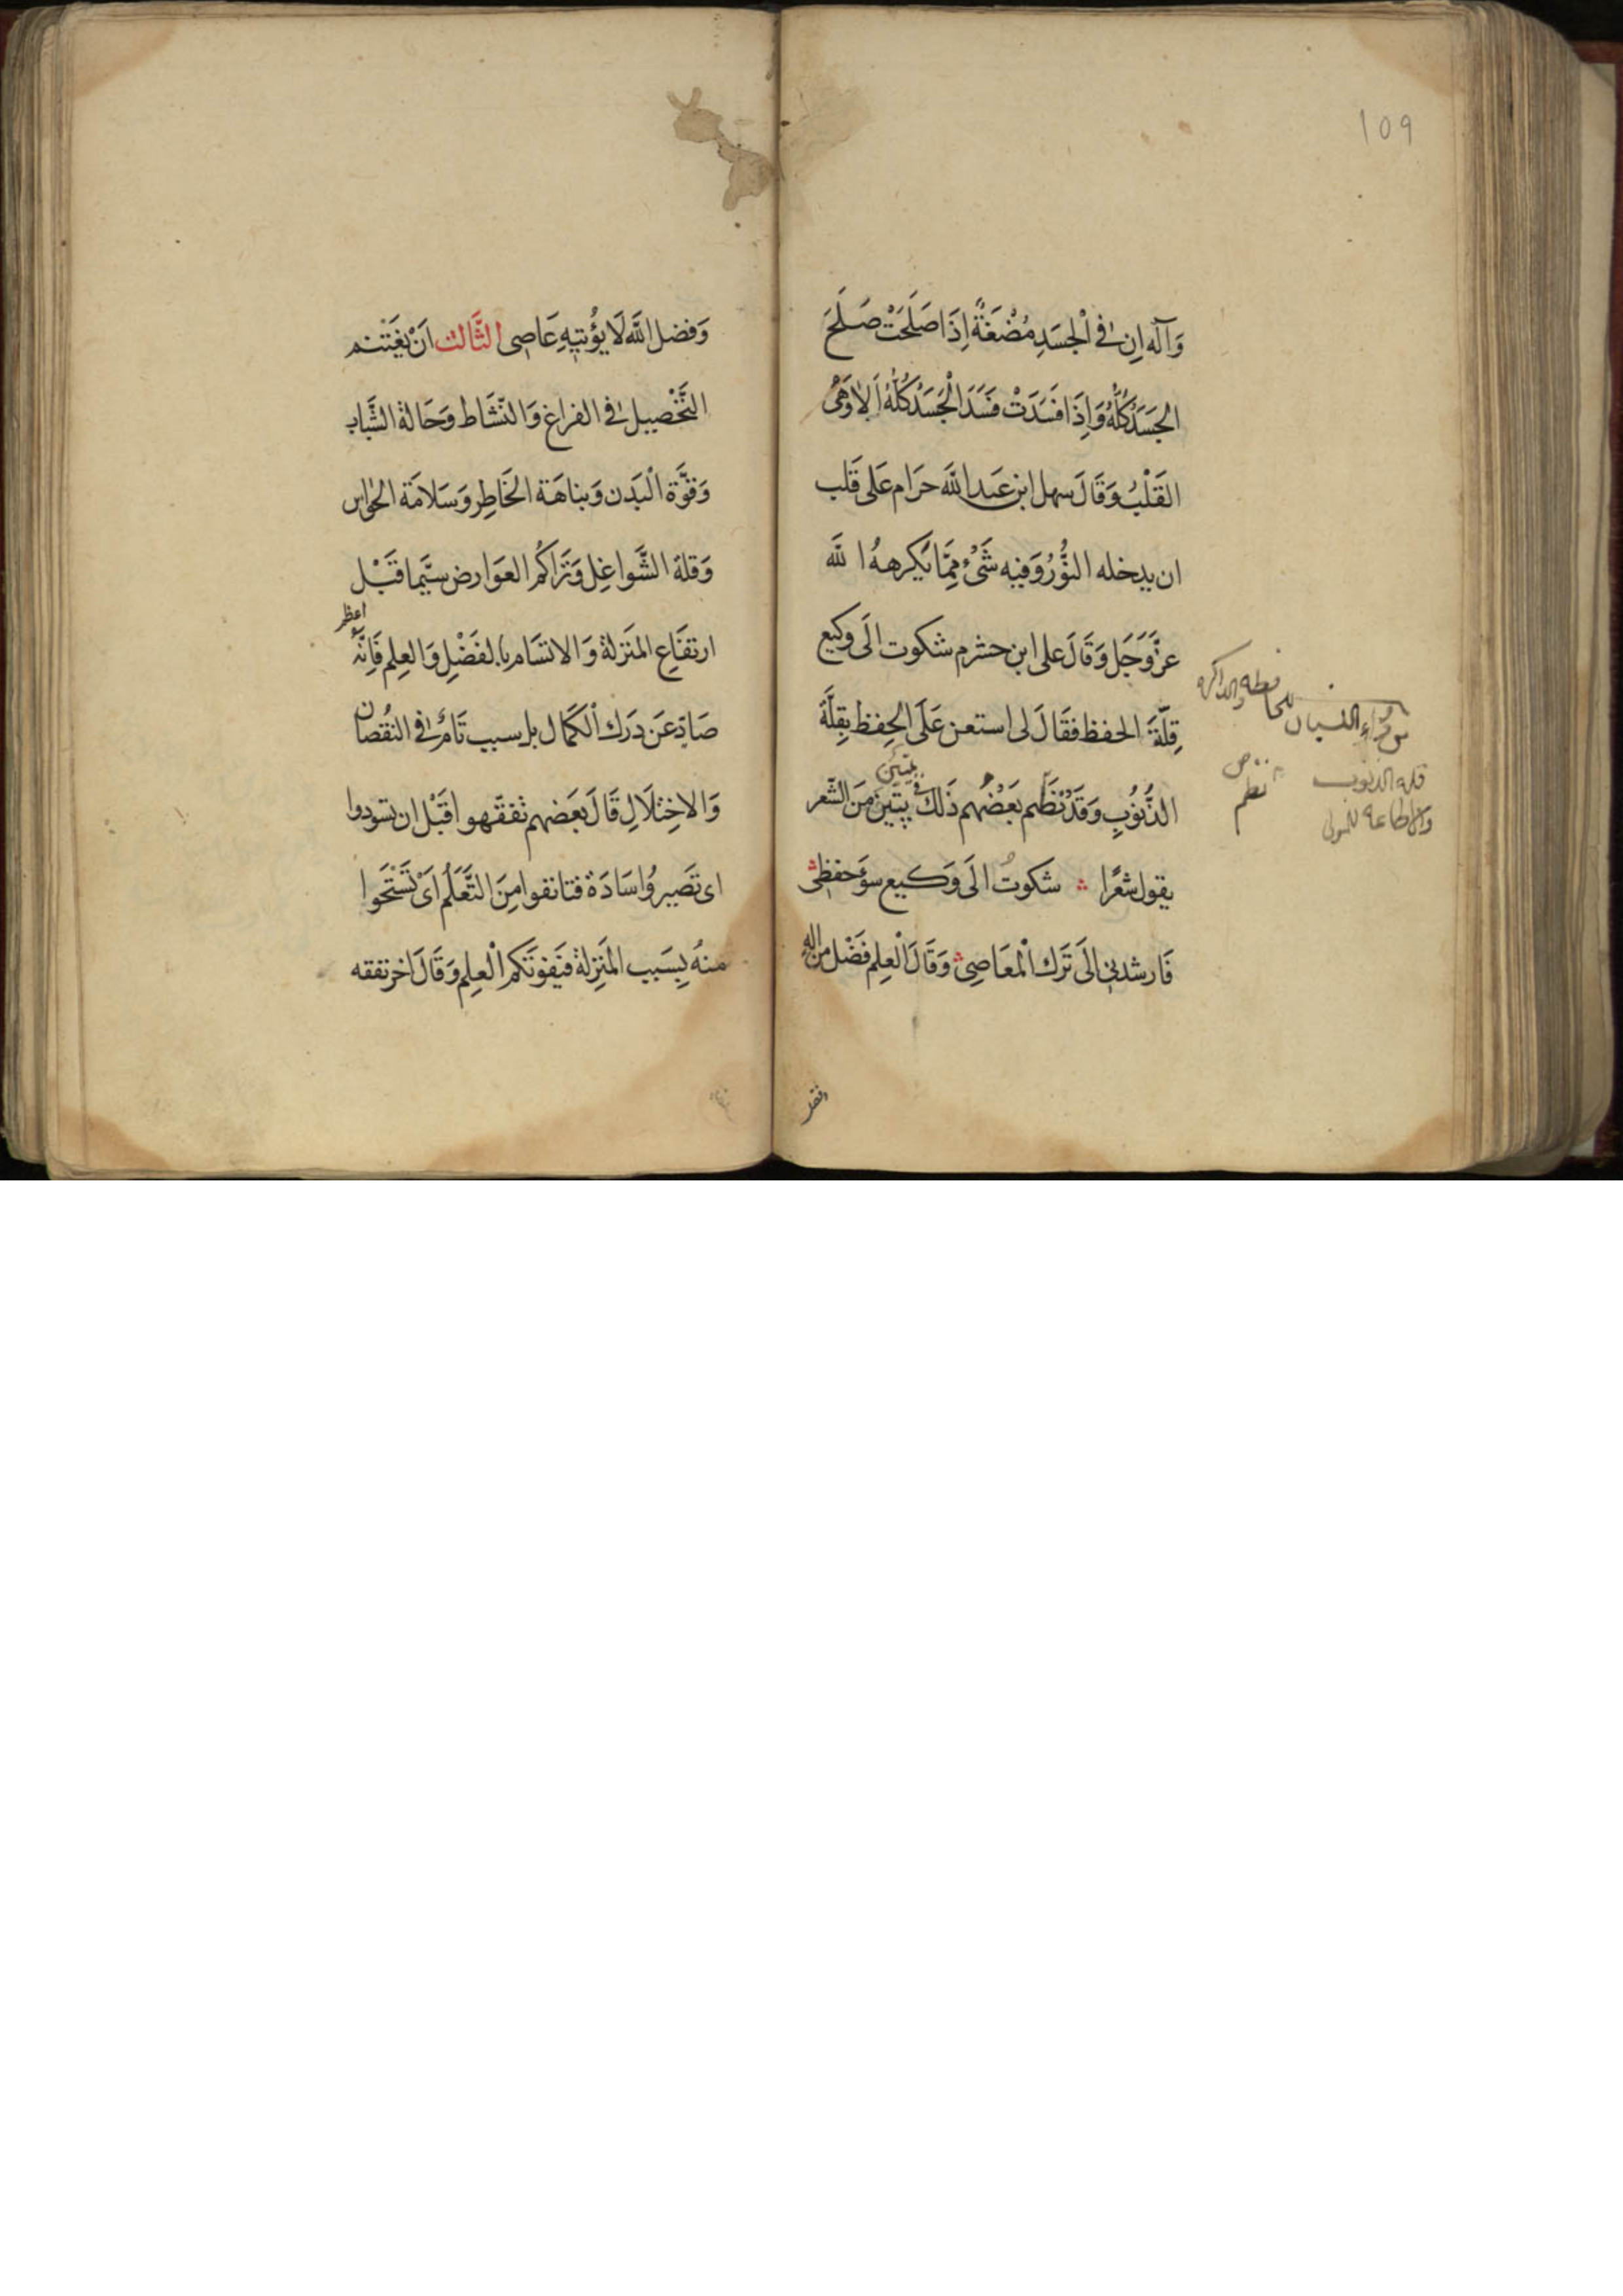 109
وَآله اِن فى اْلجسَدِ مُضْغَةً اِذَا صَلَحَتْ صَلَحَ
الجَسَدُ كُلُّهُ وَاِذَا فسَدَتْ فسَدَ الْجَسَدُ كُلُّهُ اَلاَ وَهِىَ
القَلْبُ وَقَالَ سهل ابن عَبد اللَّه حَرَام عَلى قَلب
ان يدخله النُّوُرُ وَفيه شَئُ مِمَّا يَكرههُ اللَّه
عزَّ وَجَل وَقَالَ على ابن حشرم شكوت الَى وكيع
قِلَّةَ الحفظ فقَالَ لى استعن عَلَى الحِفظ بِقِلَّةَ
الذُّنوُبِ وَقَدْ نَظَم بَعْضُهُم ذَلك فى بيتَين مَن الشّعر
بيتين
يقول شعًرا شكوتُ الَى وَكيع سوَء حفظى
فَارشدنى الَى تَرَك اْلمعَاصِى وَقَالَ اْلعِلم فَضْل من الله
للحافظه والذاكرة
قلة الذنوب
والاطاعة للمولى
نظم
وفضل
وَفضل اللَّه لَا يؤُتيهِ عَاصِى الثَّالث اَنْ يَغتَنم
التَّحْصيل فى الفراغ وَالنّشَاط وَحَالة الشَّباب
وَقوَّة اْلبَدَن وَنباهَة الخَاطِر وَسَلامَة الحْواس
وَقلة الشَّواغِل وَتَرَاكُم العَوَارض سيَّما قَبْل
ارتفَاعِ المنَزلة وَالاتسَام بالفَضْلِ وَالعِلم فَاِنَّهُ
اعظم
صَادّ عَن دَرَك اْلكَمَال بل سبب تَامُّ فى النقُصان
وَالاخِتْلَالِ قَالَ بعَضهم تفقّهوا قَبْل ان تسودوا
اى تصَيروُا سَادَة فتانفوا مِنَ التَّعَلُّم اَىْ تَسْتَحَوا
منهُ بِسَبب المنَزِلة فيَفوتَكم اْلعِلم وَقَالَ اخر تفقه